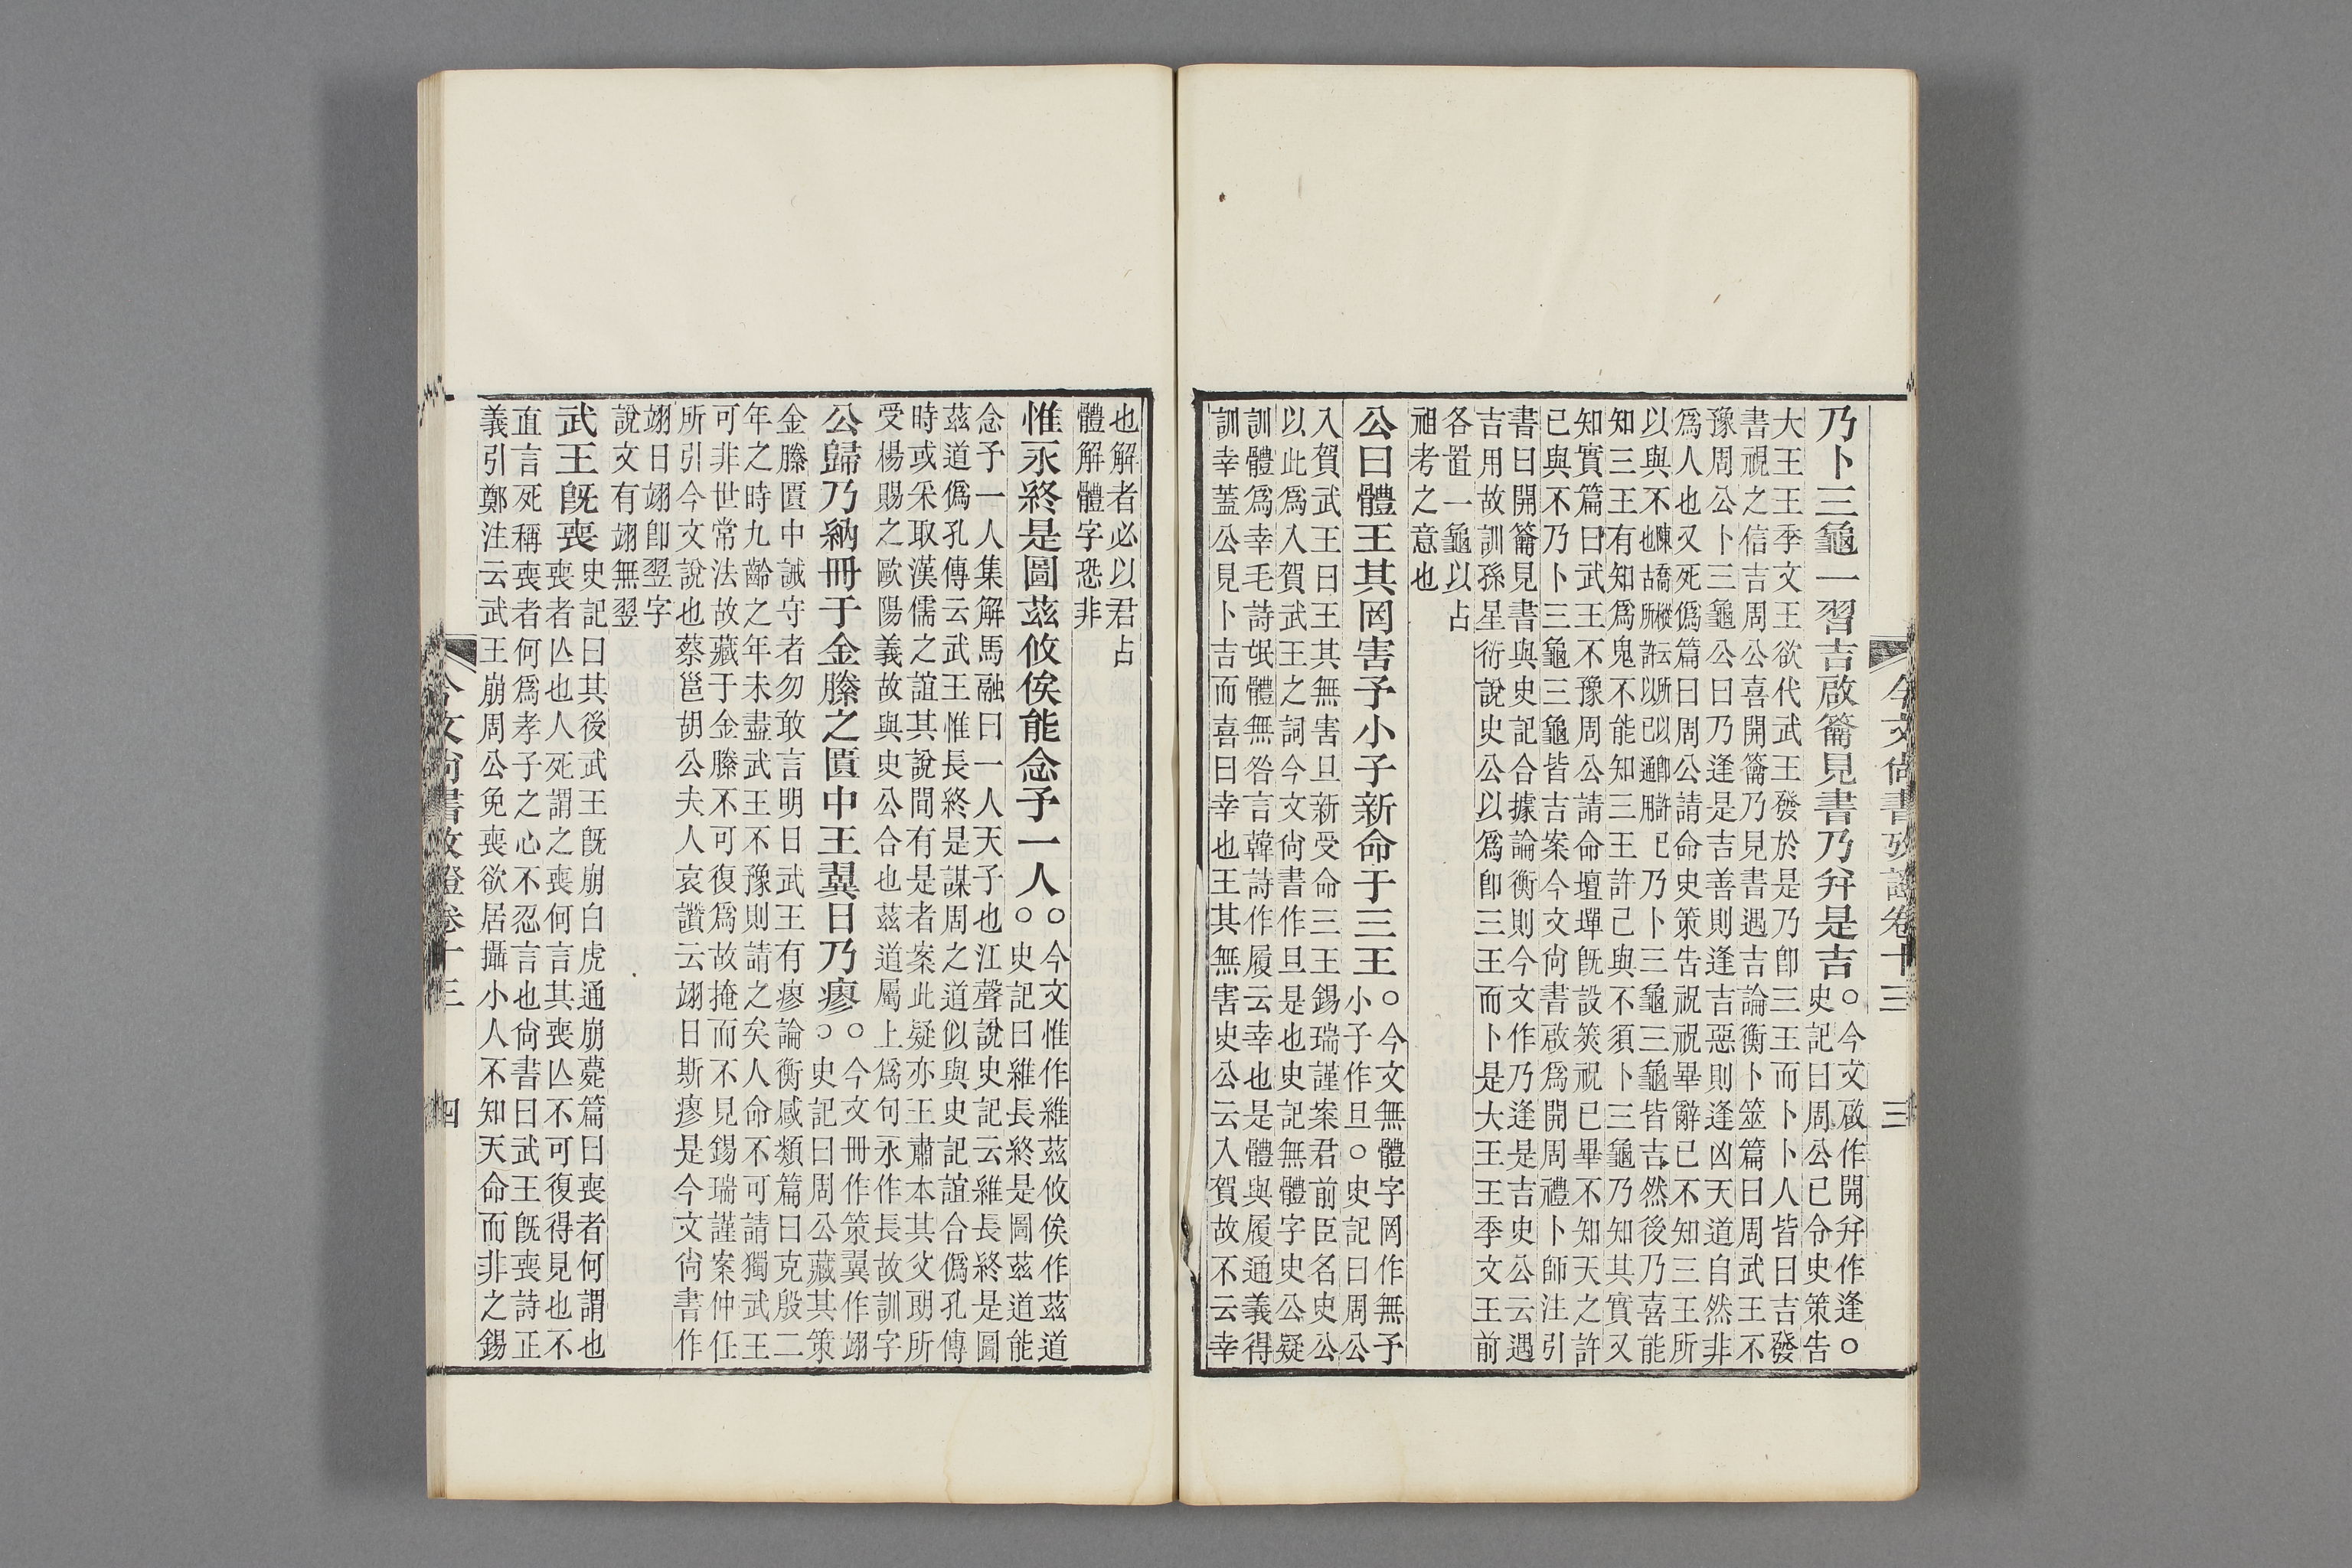 今文尚書攷證卷十三
三
乃卜三龜一習吉啟籥見書乃并是吉○今文啟作開并作逢○
史記曰周公已令史策告
大王王季文王欲代武王發於是乃卽三王而卜卜人皆曰吉發
書視之信吉周公喜開籥乃見書遇吉論衡卜筮篇曰周武王不
豫周公卜三龜公曰乃逢是吉善則逢吉惡則逢凶天道自然非
爲人也又死僞篇曰周公請命史策告祝祝畢辭已不知三王所
以與不乃卜三龜三龜皆吉然後乃喜能
知三王有知爲鬼不能知三王許己與不須卜三龜乃知其實又
知實篇曰武王不豫周公請命壇墠旣設筴祝已畢不知天之許
已與不乃卜三龜三龜皆吉案今文尚書啟爲開周禮卜師注引
書曰開籥見書與史記合據論衡則今文作乃逢是吉史公云遇
吉用故訓孫星衍說史公以爲卽三王而卜是大王王季文王前
各置一龜以占
祖考之意也
公曰體王其罔害予小子新命于三王○今文無體字罔作無予
小子作旦○史記曰周公
入賀武王曰王其無害旦新受命三王錫瑞謹案君前臣名史公
以此爲入賀武王之詞今文尚書作旦是也史記無體字史公疑
訓體爲幸毛詩氓體無咎言韓詩作履云幸也是體與履通義得
訓幸蓋公見卜吉而喜曰幸也王其無害史公云入賀故不云幸
也解者必以君占
體解體字恐非
惟永終是圖茲攸俟能念予一人○今文惟作維茲攸俟作茲道
史記曰維長終是圖茲道能
念予一人集解馬融曰一人天子也江聲說史記云維長終是圖
茲道僞孔傳云武王惟長終是謀周之道似與史記誼合僞孔傳
時或采取漢儒之誼其說間有是者案此疑亦王肅本其父朗所
受楊賜之歐陽義故與史公合也茲道屬上爲句永作長故訓字
公歸乃納冊于金縢之匱中王翼日乃瘳○今文冊作策翼作翊
○史記曰周公藏其策
金縢匱中誡守者勿敢言明日武王有瘳論衡感類篇曰克殷二
年之時九齡之年未盡武王不豫則請之矣人命不可請獨武王
可非世常法故藏于金縢不可復爲故掩而不見錫瑞謹案仲任
所引今文說也蔡邕胡公夫人哀讚云翊日斯瘳是今文尚書作
翊日翊卽翌字
說文有翊無翌
武王旣喪史記曰其後武王旣崩白虎通崩薨篇曰喪者何謂也
喪者亾也人死謂之喪何言其喪亾不可復得見也不
直言死稱喪者何爲孝子之心不忍言也尚書曰武王旣喪詩正
義引鄭注云武王崩周公免喪欲居攝小人不知天命而非之錫
今文尚書攷證卷十三
四